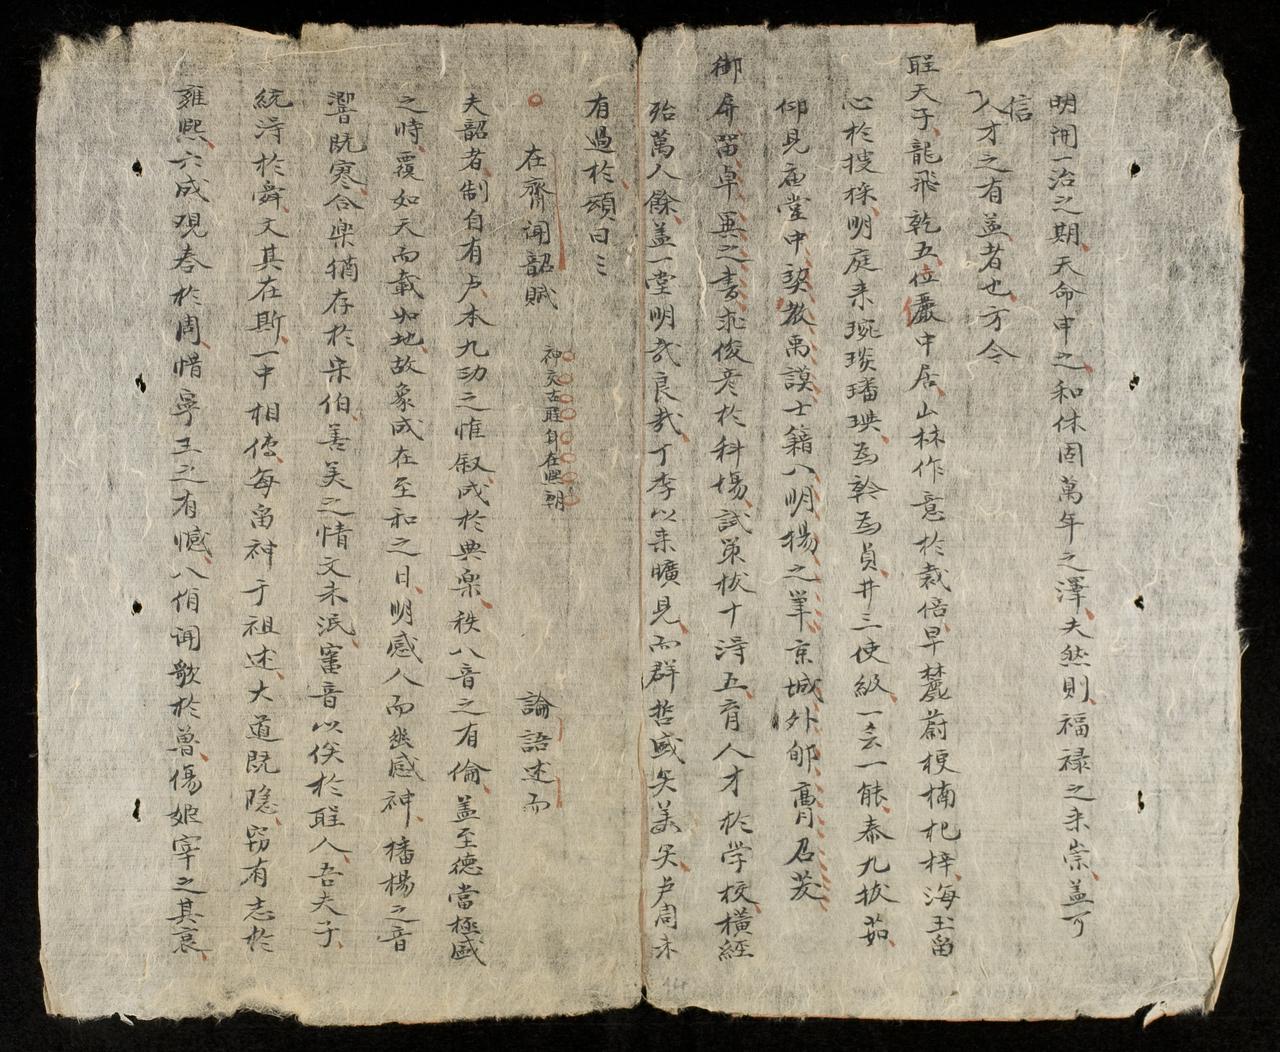 明開一治之期天命申之和休固萬年之澤夫然則福禄之来崇盖可
信
人才之有益者也方今
聖天子龍飛乾五位嚴中居山林作意於栽倍早麓蔚梗楠杞梓海玉畱
心於搜採明庭来琬琰璠璵為幹為貞井三使級一会一能泰九拔茹
仰見庙堂中契教禹謨士籍八明揚之筆京城外郇膏召茇
御屏畱卓異之書求俊彦於科塲試策拔十得五育人才於学校橫經
殆萬人餘盖一堂明哉良哉丁李以来曠見而群哲盛矣美矣卢周未
有過於頌曰〻
在齊闻韶賦
神交古聖身在熈朝
論語述而
夫韶者制自有卢本九功之惟叙成於典樂秩八音之有倫盖至德當極盛
之時覆如天而載如地故象成在至和之日明感人而幽感神播揚之音
響既寒合樂猶存於宋伯善美之情文未泯審音以俟於聖人吾夫子
統得於舜文其在斯一中相傳每畱神于祖述大道既隐窃有志於
雍熙六成观春於周惜寧王之有憾八佾闻歌於魯傷姬宰之其衰